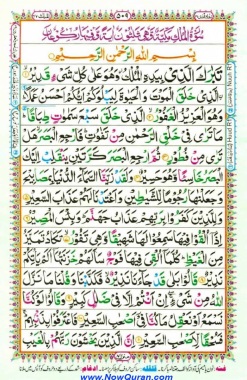 سُوْرَةُ الْمُلْكِ مَكِّيَّةٌ وَّهِيَ ثَلٰثُوْنَ اٰيَةً وَّفِيْهَا رُكُوْعَانِ
بِسْمِ اللّٰهِ الرَّحْمٰنِ الرَّحِيْمِ
تَبٰرَكَ الَّذِيْ بِيَدِهِ الْمُلْكُ وَهُوَ عَلٰى كُلِّ شَيْءٍ قَدِيْرُ
الَّذِيْ خَلَقَ الْمَوْتَ وَالْحَيٰوةَ لِيَبْلُوَكُمْ اَيُّكُمْ اَحْسَنُ عَمَلًا
وَهُوَ الْعَزِيْزُ الْغَفُوْرُ الَّذِيْ خَلَقَ سَبْعَ سَمٰوٰتٍ طِبَاقًا
مَا تَرٰى فِيْ خَلْقِ الرَّحْمٰنِ مِنْ تَفٰوُتٍ فَارْجِعِ الْبَصَرَ هَلْ
تَرٰى مِنْ فُطُوْرٍ ثُمَّ ارْجِعِ الْبَصَرَ كَرَّتَيْنِ يَنْقَلِبْ اِلَيْكَ
الْبَصَرُ خَاسِئًا وَّهُوَ حَسِيْرٌ وَلَقَدْ زَيَّنَّا السَّمَآءَ الدُّنْيَا بِمَصَابِيْحَ
وَجَعَلْنٰهَا رُجُوْمًا لِّلشَّيٰطِيْنِ وَاَعْتَدْنَا لَهُمْ عَذَابَ السَّعِيْرِ
وَلِلَّذِيْنَ كَفَرُوْا بِرَبِّهِمْ عَذَابُ جَهَنَّمَ وَبِئْسَ الْمَصِيْرُ
اِذَآ اُلْقُوْا فِيْهَا سَمِعُوْا لَهَا شَهِيْقًا وَّهِيَ تَفُوْرُ تَكَادُ تَمَيَّزُ
مِنَ الْغَيْظِ كُلَّمَآ اُلْقِيَ فِيْهَا فَوْجٌ سَاَلَهُمْ خَزَنَتُهَآ اَلَمْ يَاْتِكُمْ
نَذِيْرٌ قَالُوْا بَلٰى قَدْ جَآءَنَا نَذِيْرٌ فَكَذَّبْنَا وَقُلْنَا مَا نَزَّلَ
اللّٰهُ مِنْ شَيْءٍ اِنْ اَنْتُمْ اِلَّا فِيْ ضَلٰلٍ كَبِيْرٍ وَقَالُوْا لَوْ كُنَّا
نَسْمَعُ اَوْ نَعْقِلُ مَا كُنَّا فِيْٓ اَصْحٰبِ السَّعِيْرِ فَاعْتَرَفُوْا بِذَنْبِهِمْ
فَسُحْقًا لِّاَصْحٰبِ السَّعِيْرِ اِنَّ الَّذِيْنَ يَخْشَوْنَ رَبَّهُمْ بِالْغَيْبِ لَهُمْ
www.NowQuran.com